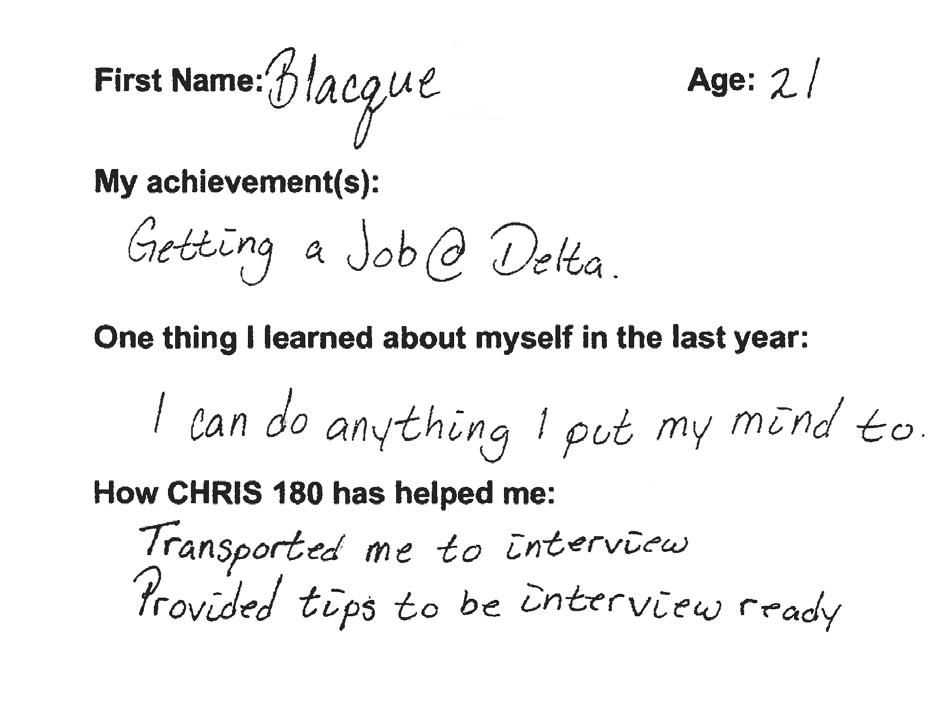 First Name: Blacque Age: 21
My achievement(s):
Getting a Job @ Delta.
One thing I learned about myself in the last year:
I can do anything I put my mind to.
How CHRIS 180 has helped me:
Transported me to interview
Provided tips to be interview ready